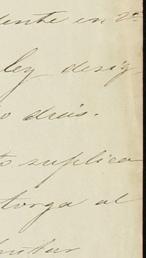 ente en 2º
ley desig
o dias.
to suplica
torga al